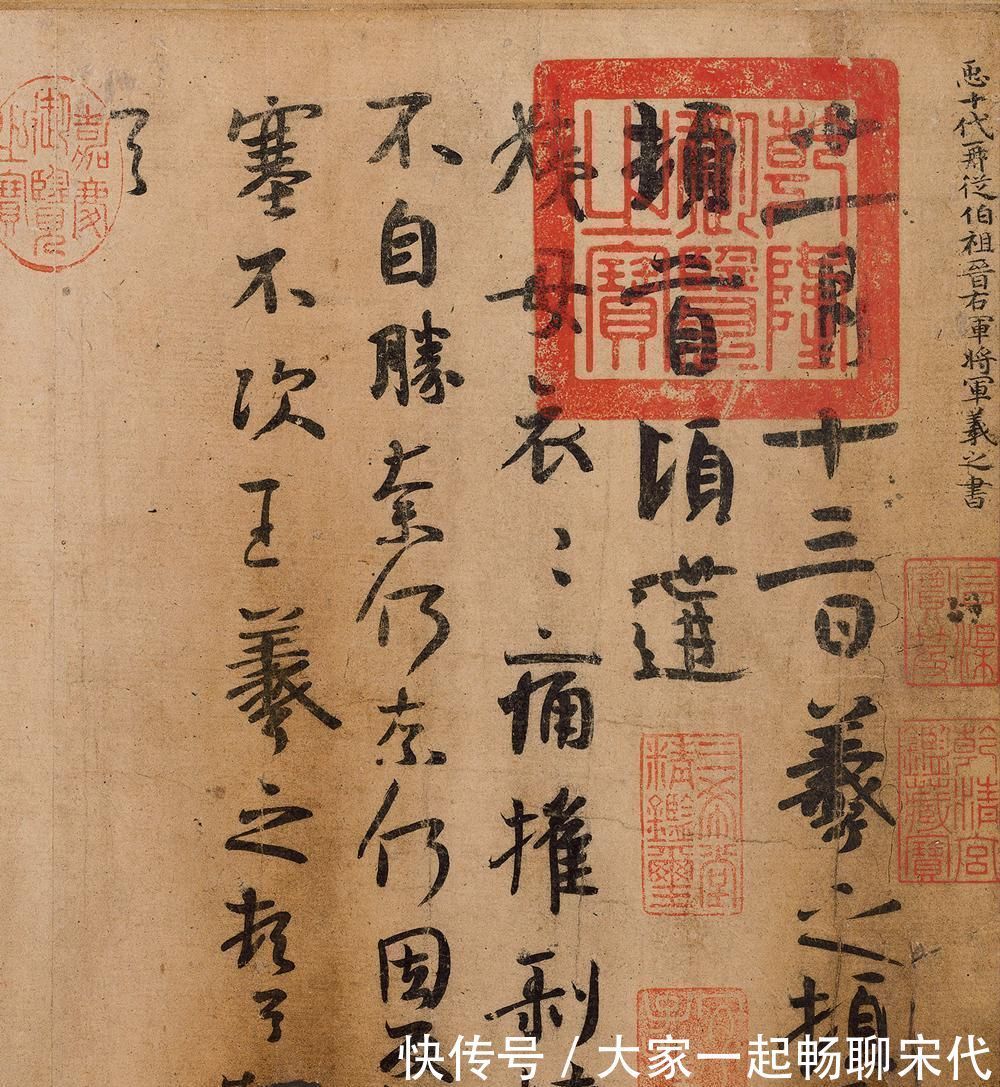 𢘑十代再從伯祖晉右軍將軍羲之書
十一月十三日羲之頓
頓首頃遘
姨母哀〻痛摧剝
不自勝奈何奈何因
塞不次王羲之頓首
首
乾隆御覽之寶
嘉慶御覽之寶
石渠寶笈
乾清宮鑑藏寶
三希堂精鑑璽
快传号 / 大家一起畅聊宋代